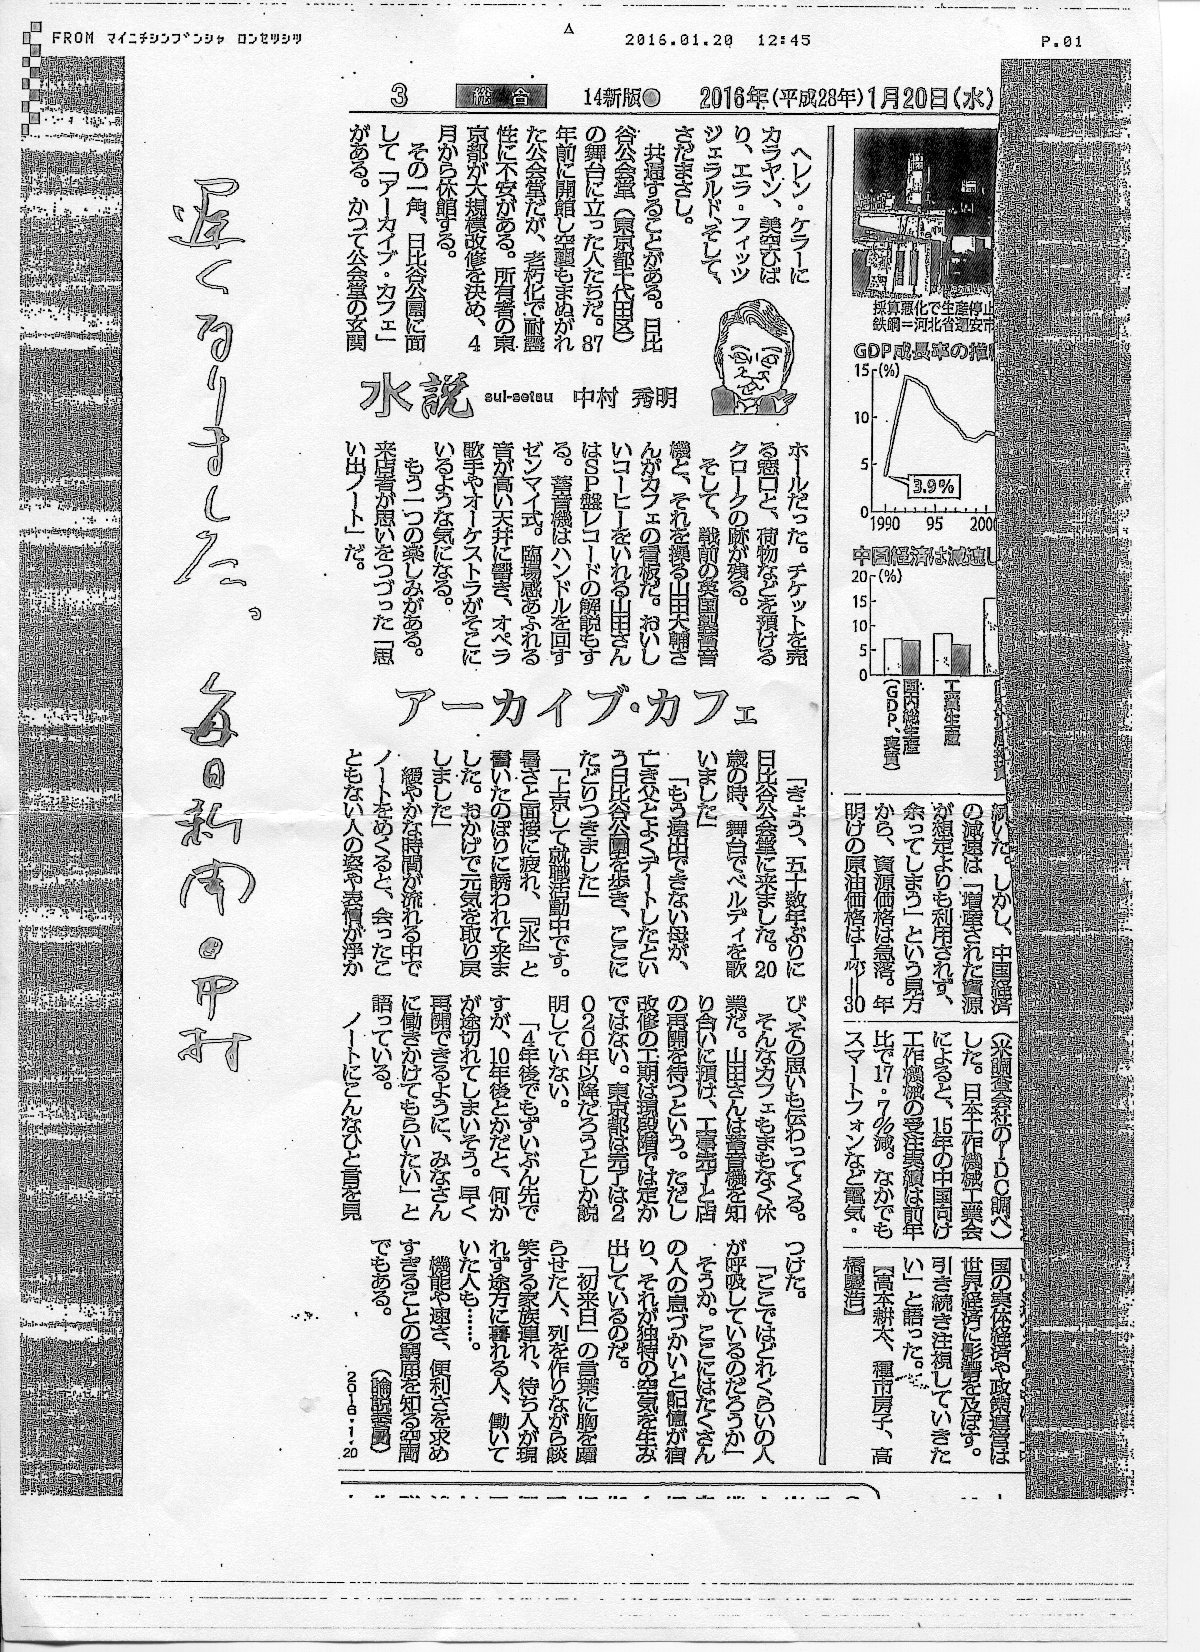 FROM マイニチシンブンシャ ロンセツシツ
2016.01.20 12:45
P.01
遅くなりました。毎日新聞 中村
3
総合
14新版
2016年(平成28年)1月20日(水)
ヘレン・ケラーに
カラヤン、美空ひば
り、エラ・フィッツ
ジェラルド、そして、
さだまさし。
共通することがある。日比
谷公会堂(東京都千代田区)
の舞台に立った人たちだ。87
年前に開館し空襲もまぬがれ
た公会堂だが、老朽化で耐震
性に不安がある。所有者の東
京都が大規模改修を決め、4
月から休館する。
その一角、日比谷公園に面
して「アーカイブ・カフェ」
がある。かつて公会堂の玄関
水説
sui-setsu
中村 秀明
ホールだった。チケットを売
る窓口と、荷物などを預ける
クロークの跡が残る。
そして、戦前の英国製蓄音
機と、それを操る山田大輔さ
んがカフェの看板だ。おいし
いコーヒーをいれる山田さん
はSP盤レコードの解説もす
る。蓄音機はハンドルを回す
ゼンマイ式。臨場感あふれる
音が高い天井に響き、オペラ
歌手やオーケストラがそこに
いるような気になる。
もう一つの楽しみがある。
来店者が思いをつづった「思
い出ノート」だ。
アーカイブ・カフェ
「きょう、五十数年ぶりに
日比谷公会堂に来ました。20
歳の時、舞台でベルディを歌
いました」
「もう遠出できない母が、
亡き父とよくデートしたとい
う日比谷公園を歩き、ここに
たどりつきました」
「上京して就職活動中です。
暑さと面接に疲れ、『氷』と
書いたのぼりに誘われて来ま
した。おかげで元気を取り戻
しました」
緩やかな時間が流れる中で
ノートをめくると、会ったこ
ともない人の姿や表情が浮か
び、その思いも伝わってくる。
そんなカフェもまもなく休
業だ。山田さんは蓄音機を知
り合いに預け、工事完了と店
の再開を待つという。ただし
改修の工期は現段階では定か
ではない。東京都は完了は2
020年以降だろうとしか説
明していない。
「4年後でもずいぶん先で
すが、10年後とかだと、何か
が途切れてしまいそう。早く
再開できるように、みなさん
に働きかけてもらいたい」と
語っている。
ノートにこんなひと言を見
つけた。
「ここではどれくらいの人
が呼吸しているのだろうか」
そうか。ここにはたくさん
の人の息づかいと記憶が宿
り、それが独特の空気を生み
出しているのだ。
「初来日」の言葉に胸を躍
らせた人、列を作りながら談
笑する家族連れ、待ち人が現
れず途方に暮れる人、働いて
いた人も……。
機能や速さ、便利さを求め
すぎることの窮屈を知る空間
でもある。
(論説委員)
2016・1・20
採算悪化で生産停止
鉄鋼=河北省遷安市
GDP成長率の推
15
(%)
10
5
0
3.9%
1990
95
200
中国経済は減速し
20
(%)
15
10
5
0
国内総生産
(GDP、実質)
工業生産
続いた。しかし、中国経済
の減速は「増産された資源
が想定よりも利用されず、
余ってしまう」という見方
から、資源価格は急落。年
明けの原油価格は1バレル=30
(米調査会社のIDC調べ)
した。日本工作機械工業会
によると、15年の中国向け
工作機械の受注実績は前年
比で17・7%減。なかでも
スマートフォンなど電気・
国の実体経済や政策運営は
世界経済に影響を及ぼす。
引き続き注視していきた
い」と語った。
【高本耕太、種市房子、高
橋慶浩】